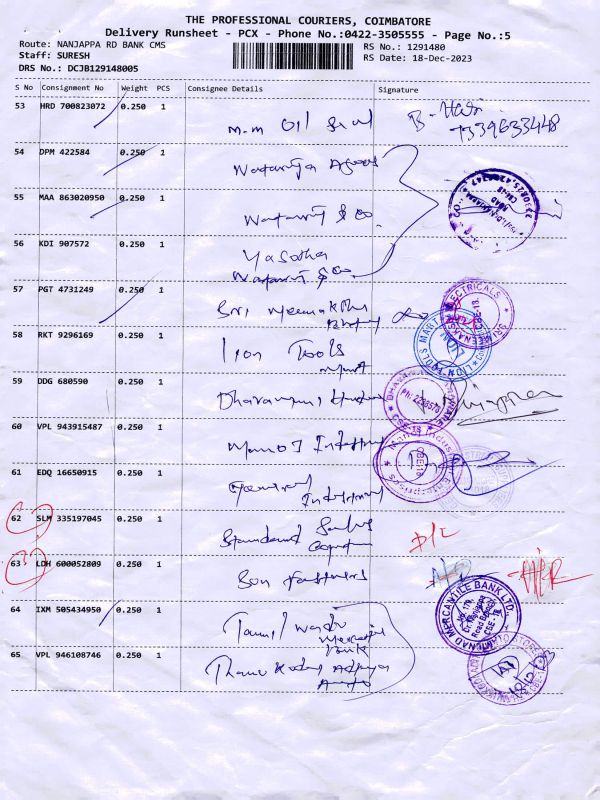 THE PROFESSIONAL COURIERS, COIMBATORE
Delivery Runsheet - PCX - Phone No.:0422-3505555 - Page No.:5
Route: NANJAPPA RD BANK CMS
RS No.: 1291480
Staff: SURESH
RS Date: 18-Dec-2023
DRS No.: DCJB129148005
S No Consignment No Weight PCS Consignee Details Signature
53 HRD 700823072 0.250 1
M.M Oil Seal
7339633448
54 DPM 422584 0.250 1
55 MAA 863020950 0.250 1
& Co.
56 KDI 907572 0.250 1
& Co
57 PGT 4731249 0.250 1
Sri Meenakshi
ELECTRICALS
58 RKT 9296169 0.250 1
Lion Tools
Mart
LION TOOLS MART
59 DDG 680590 0.250 1
CBE-18
60 VPL 943915487 0.250 1
Manoj Industry
61 EDQ 16650915 0.250 1
General
Industrial
62 SLM 335197045 0.250 1
Standard Sales
D/L
63 LDH 600052809 0.250 1
Fasteners
64 IXM 505434950 0.250 1
Tamil Nadu
Mercantile
Bank
TAMILNAD MERCANTILE BANK LTD.
65 VPL 946108746 0.250 1
Auto
18/12/23